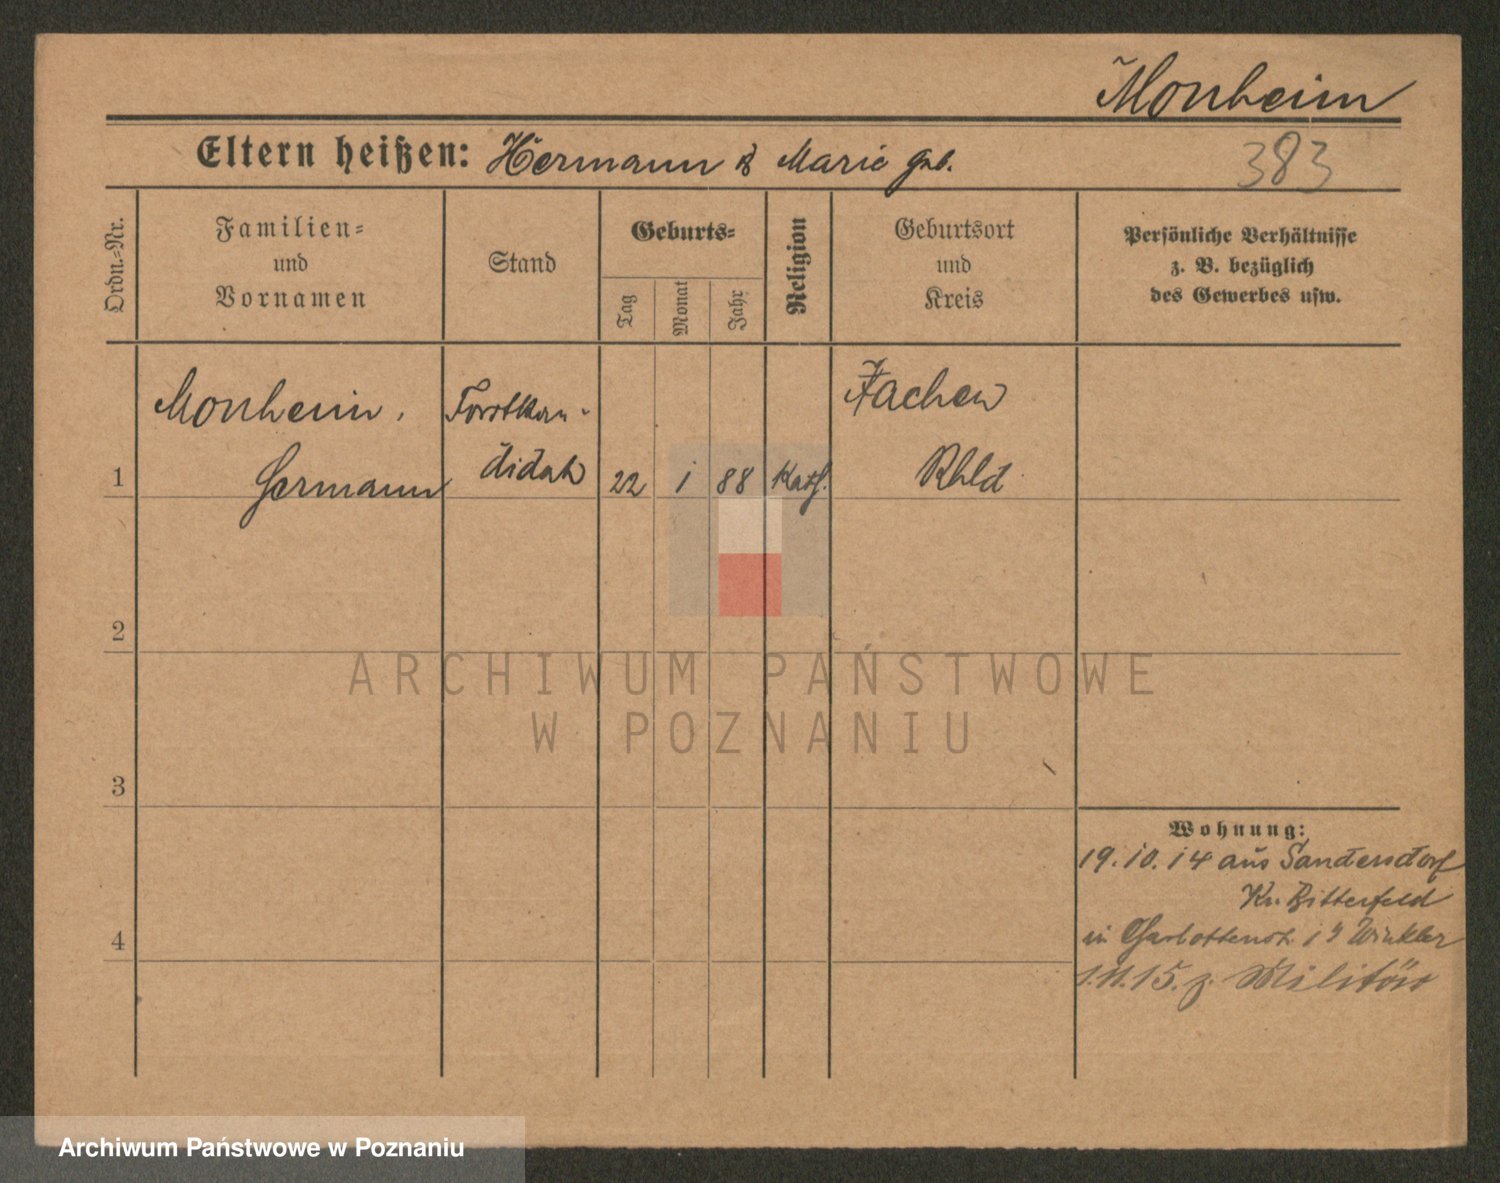 Monheim
Eltern heißen: Hermann & Marie geb.
383
Ordn.=Nr.
Familien=
und
Vornamen
Stand
Geburts=
Tag
Monat
Jahr
Religion
Geburtsort
und
Kreis
Persönliche Verhältnisse
z. B. bezüglich
des Gewerbes usw.
1
Monheim,
Hermann
Forstkan-
didat
22
1
88
Kath.
Aachen
Rhld
2
3
4
Wohnung:
19.10.14 aus Sandersdorf
Kr. Bitterfeld
in Charlottenstr. 19 Winkler
1.11.15. z. Militär
ARCHIWUM PAŃSTWOWE
W POZNANIU
Archiwum Państwowe w Poznaniu